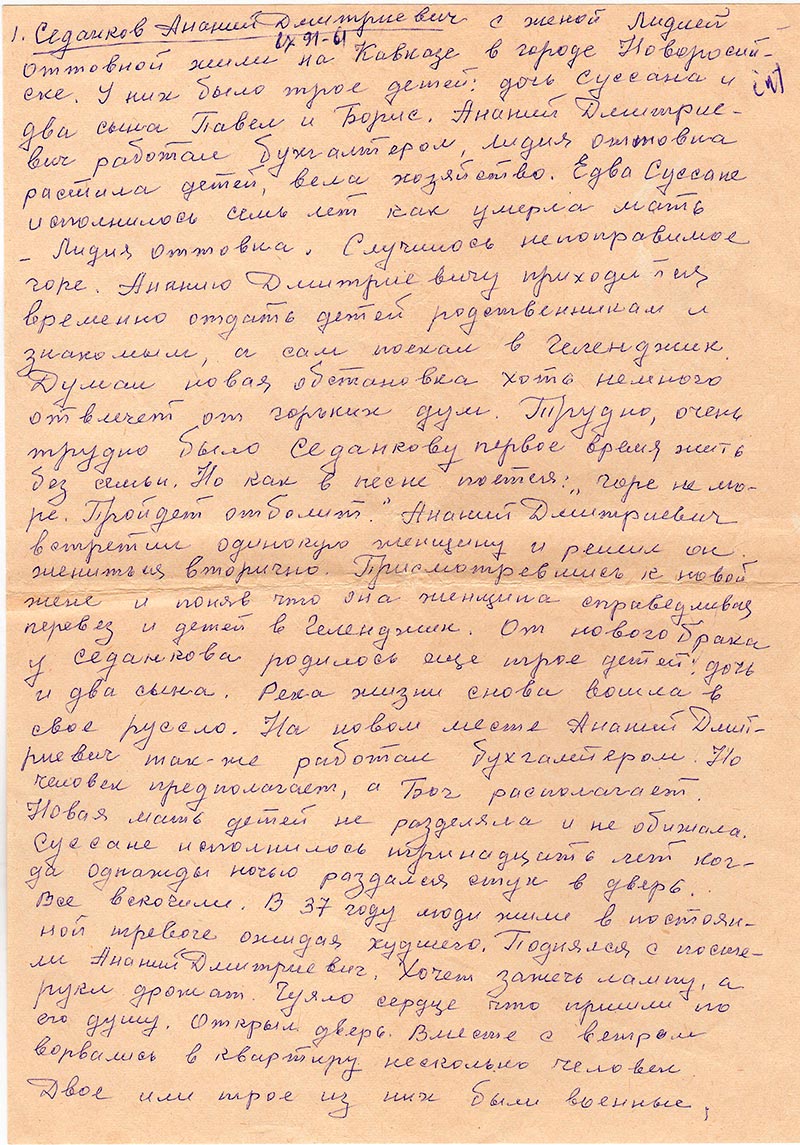 1. Седанков Ананий Дмитриевич с женой Лидией
IX 91-61
Оттовной жили на Кавказе в городе Новоросий-
ске. У них было трое детей: дочь Суссана и
два сына Павел и Борис. Ананий Дмитрие-
вич работал бухгалтером, Лидия Оттовна
растила детей, вела хозяйство. Едва Суссане
исполнилось семь лет как умерла мать
- Лидия Оттовна. Случилось непоправимое
горе. Ананию Дмитриевичу приходится
временно отдать детей родственникам и
знакомым, а сам поехал в Геленджик.
Думал новая обстановка хоть немного
отвлечет от горьких дум. Трудно, очень
трудно было Седанкову первое время жить
без семьи. Но как в песне поется: „горе не мо-
ре. Пройдет отболит." Ананий Дмитриевич
встретил одинокую женщину и решил он
жениться вторично. Присмотревшись к новой
жене и поняв что эта женщина справедливая
перевез и детей в Геленджик. От нового брака
у Седанкова родилось еще трое детей: дочь
и два сына. Река жизни снова вошла в
свое руссло. На новом месте Ананий Дмит-
риевич так-же работал бухгалтером. Но
человек предполагает, а Бог располагает.
Новая мать детей не разделяла и не обижала.
Суссане исполнилось тринадцать лет ког-
да однажды ночью раздался стук в дверь.
Все вскочили. В 37 году люди жили в постоян-
ной тревоге ожидая худшего. Поднялся с посте-
ли Ананий Дмитриевич. Хочет зажечь лампу, а
руки дрожат. Чуяло сердце что пришли по
его душу. Открыл дверь. Вместе с ветром
ворвались в квартиру несколько человек.
Двое или трое из них были военные,